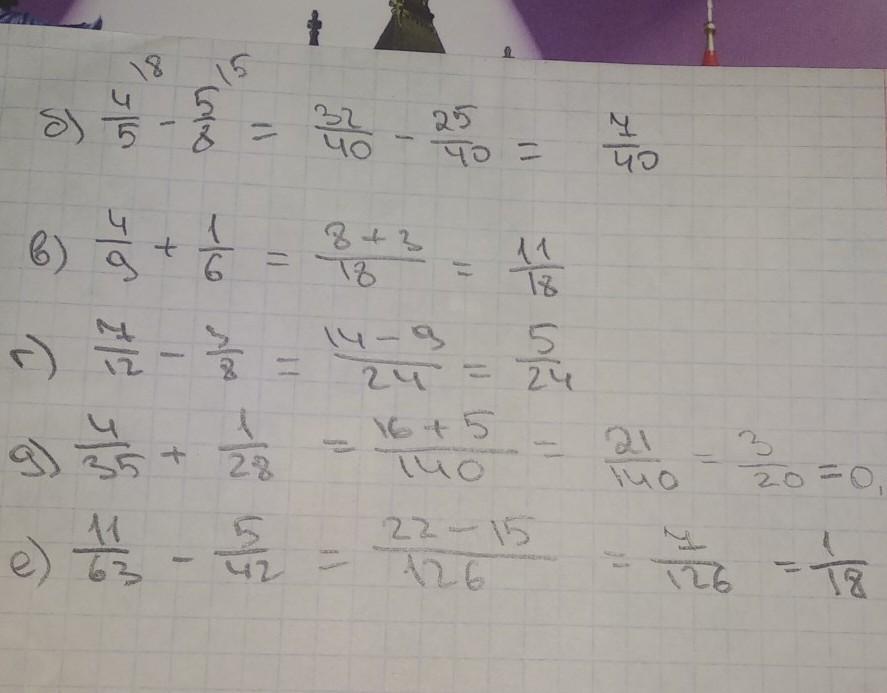 б) 4/5 \8 - 5/8 \5 = 32/40 - 25/40 = 7/40
в) 4/9 + 1/6 = 8+3/18 = 11/18
г) 7/12 - 3/8 = 14-9/24 = 5/24
д) 4/35 + 1/28 = 16+5/140 = 21/140 = 3/20 = 0,
е) 11/63 - 5/42 = 22-15/126 = 7/126 = 1/18